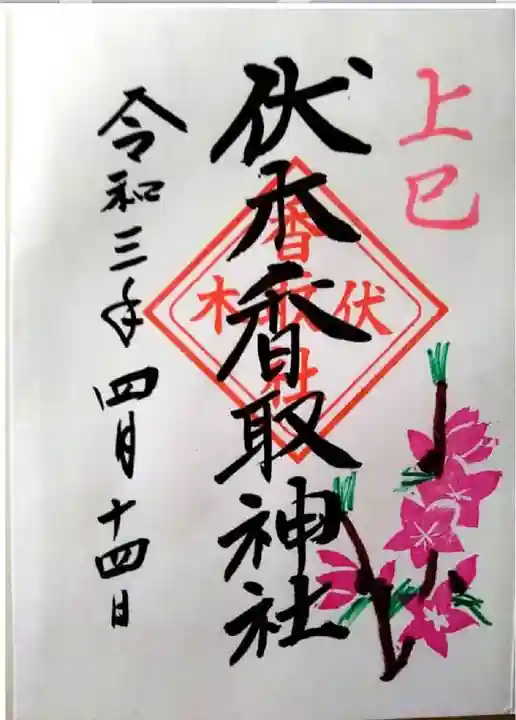 上巳
伏木香取神社
伏木
香取社
令和三年四月十四日